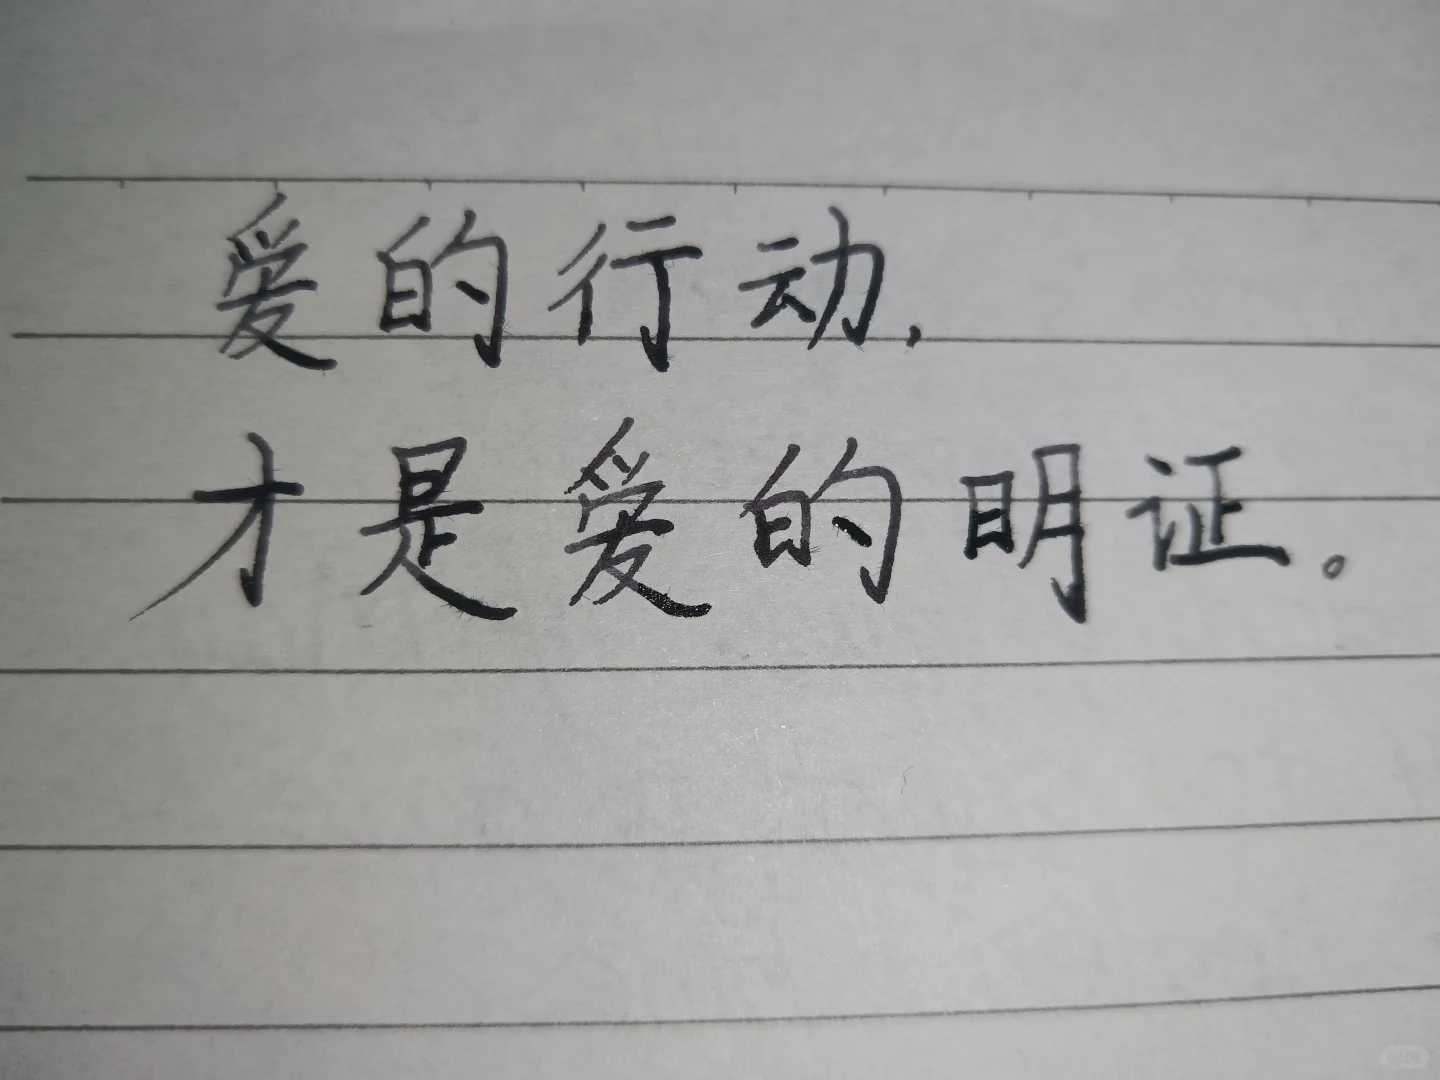 爱的行动，
才是爱的明证。